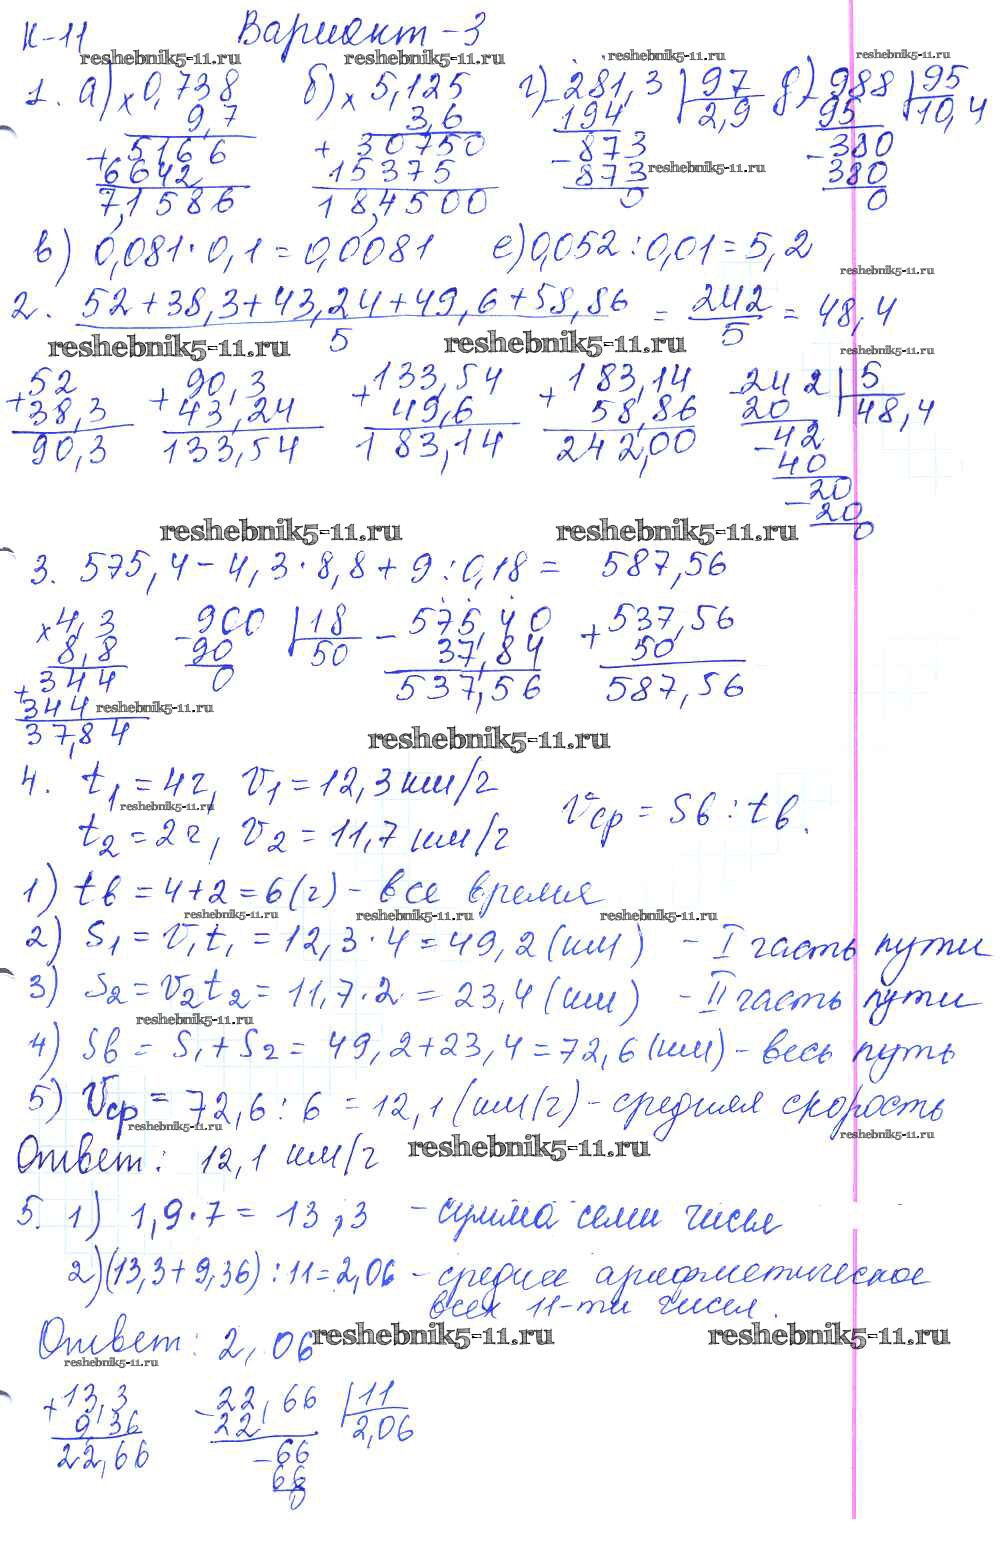 К-11 Вариант-3
reshebnik5-11.ru reshebnik5-11.ru reshebnik5-11.ru reshebnik5-11.ru
1. а) × 0,738 б) × 5,125 г) - 281,3 | 97 д) - 988 | 95
9,7 3,6 194 2,9 95 10,4
+ 5166 + 30750 - 873 - 380
6642 15375 873 reshebnik5-11.ru 380
7,1586 18,4500 0 0
в) 0,081·0,1=0,0081 е) 0,052:0,01=5,2
reshebnik5-11.ru
2. 52+38,3+43,24+49,6+58,86 = 242 = 48,4
5 5
reshebnik5-11.ru reshebnik5-11.ru reshebnik5-11.ru
+ 52 + 90,3 + 133,54 + 183,14 - 242 | 5
38,3 43,24 49,6 58,86 20 48,4
90,3 133,54 183,14 242,00 - 42
40
- 20
20
0
reshebnik5-11.ru reshebnik5-11.ru
3. 575,4-4,3·8,8+9:0,18= 587,56
× 4,3 - 900 | 18 - 575,40 + 537,56
8,8 90 50 37,84 50
+ 344 0 537,56 587,56
344 reshebnik5-11.ru
37,84
reshebnik5-11.ru
4. t1=4ч, v1=12,3 км/ч
reshebnik5-11.ru
vср = Sв : tв.
t2=2ч, v2=11,7 км/ч
1) tв = 4+2=6(ч) - все время
reshebnik5-11.ru reshebnik5-11.ru reshebnik5-11.ru
2) S1 = v1t1 = 12,3·4=49,2(км) - I часть пути
3) S2=v2t2= 11,7·2 = 23,4(км) - II часть пути
reshebnik5-11.ru
4) Sв = S1+S2 = 49,2+23,4=72,6(км) - весь путь
5) Vср = 72,6:6 =12,1(км/ч) - средняя скорость
reshebnik5-11.ru reshebnik5-11.ru reshebnik5-11.ru
Ответ: 12,1 км/ч
5. 1) 1,9·7= 13,3 - сумма семи чисел
2)(13,3+9,36):11=2,06 - среднее арифметическое
всех 11-ти чисел.
Ответ: 2,06
reshebnik5-11.ru reshebnik5-11.ru
reshebnik5-11.ru
+ 13,3 - 22,66 | 11
9,36 22 2,06
22,66 - 66
66
0